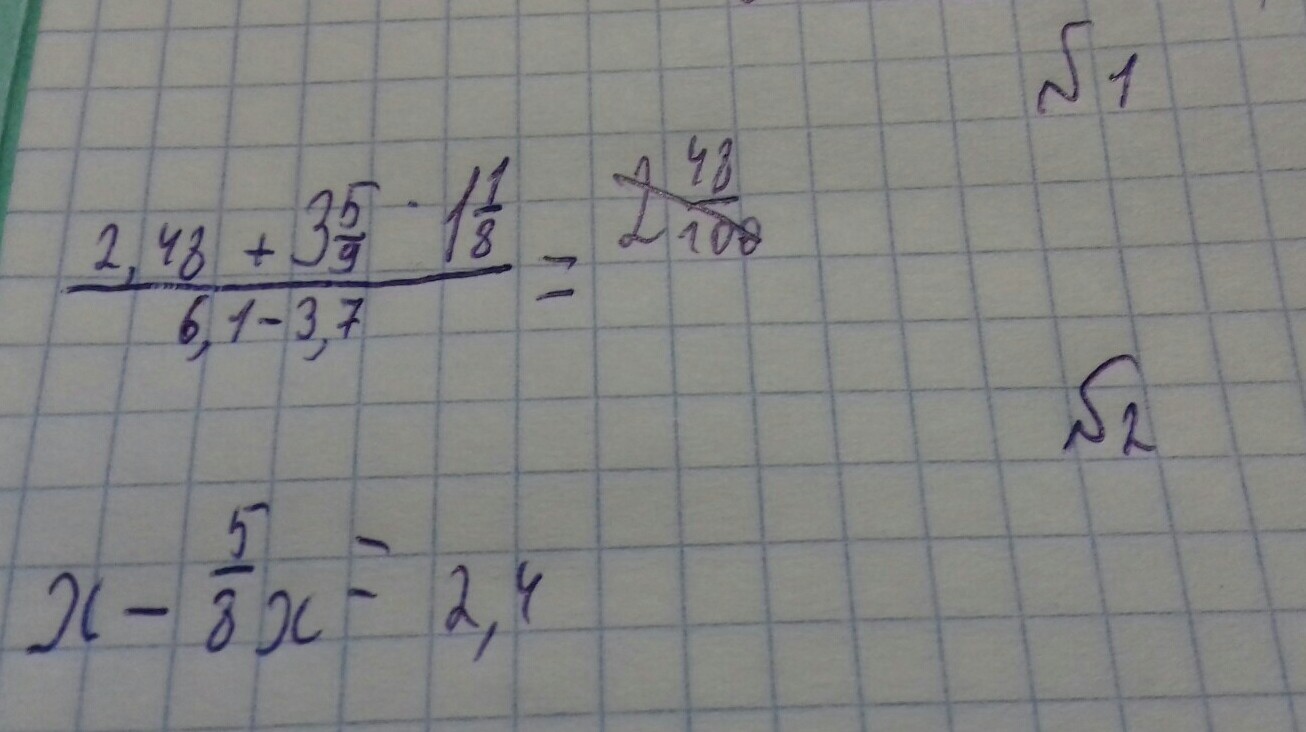 №1
(2,48 + 3 5/9 · 1 1/8) / (6,1 - 3,7) = 2 48/100
№2
x - 5/8 x = 2,4